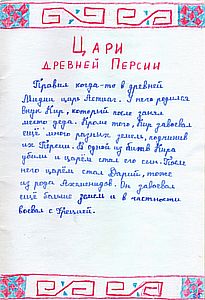 Цари
древней Персии
Правил когда-то в древней
Мидии царь Астиаг. У него родился
внук Кир, который после занял
место деда. Кроме того, Кир завоевал
ещё много разных земель, подчинив
их Персии. В одной из битв Кира
убили и царём стал его сын. После
него царём стал Дарий, тоже
из рода Ахеменидов. Он завоевал
ещё больше земель и в частности
воевал с Грецией.